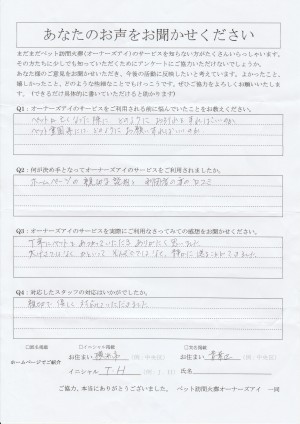 あなたのお声をお聞かせください
まだまだペット訪問火葬(オーナーズアイ)のサービスを知らない方がたくさんいらっしゃいます。
その方たちに少しでも知っていただくためにアンケートにご協力いただけないでしょうか。
あなた様のご意見をお聞かせいただき、今後の活動に反映したいと考えています。よかったこと、
嬉しかったこと、どのような些細なことでもけっこうです。ぜひご協力をよろしくお願いいたしま
す。(できるだけ具体的に書いていただけると助かります)
Q1:オーナーズアイのサービスをご利用される前に悩んでいたことをお聞かせください。
ペットが亡くなった際に どのように お別れを すればいいのか。
Q2:何が決め手となってオーナーズアイのサービスをご利用されましたか。
ホームページの 親切な説明と 利用者の方の 口コミ
Q3:オーナーズアイのサービスを実際にご利用なさってみての感想をお聞かせください。
丁寧にペットを あつかっていただき ありがたく 思いました。
Q4:対応したスタッフの対応はいかがでしたか。
親切で 優しく 対応していただきました。
□匿名掲載 □イニシャル掲載 □実名掲載
ホームページでご紹介
お住まい
お住まい
イニシャル T.H 氏名
ご協力、本当にありがとうございました。 ペット訪問火葬オーナーズアイ 一同